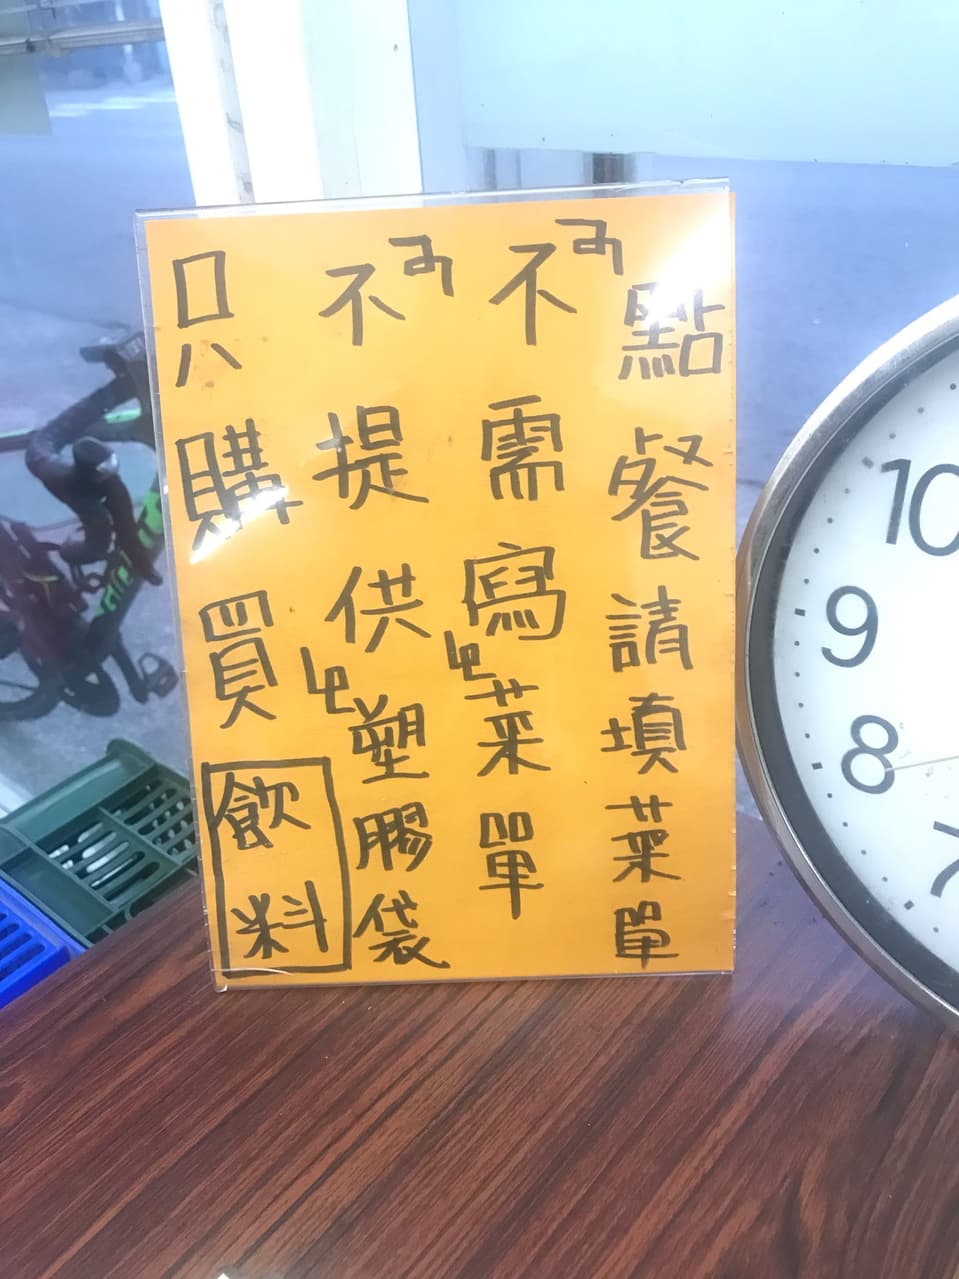 點餐請填菜單
不需寫菜單
不提供塑膠袋
只購買飲料
10
9
8
7